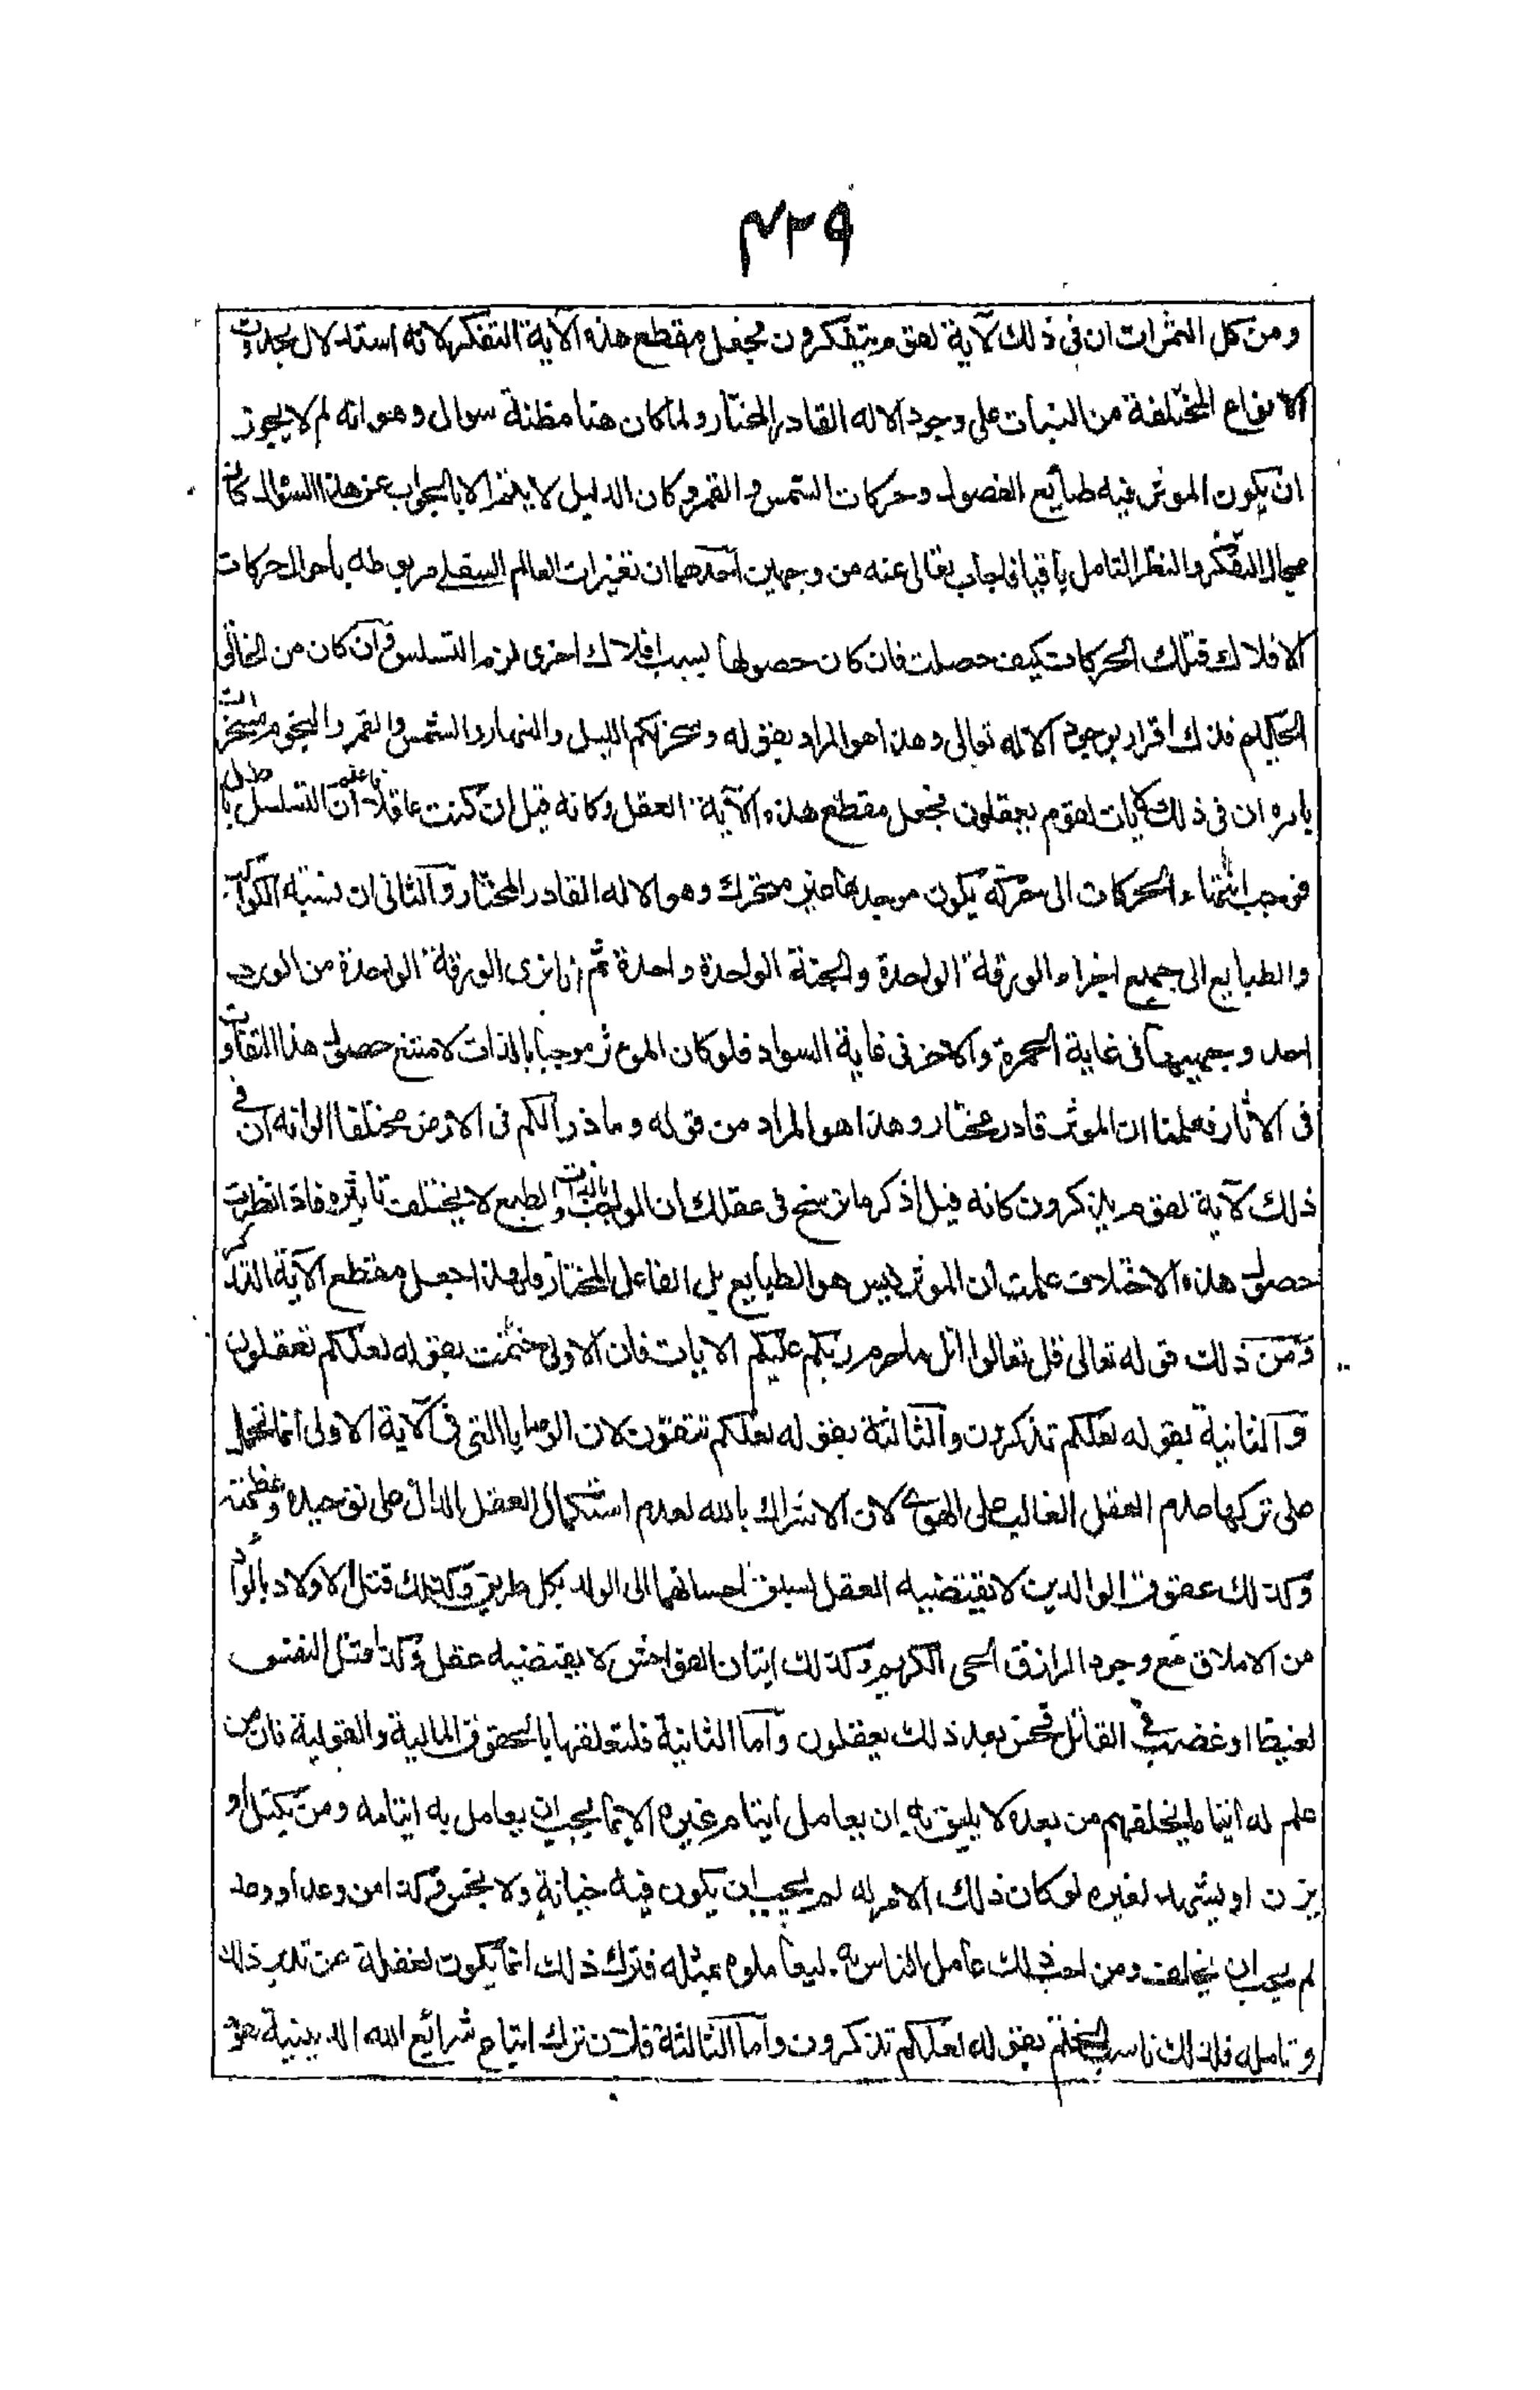 ٤٢٩
ومن كل الثمرات ان فى ذلك لآية لقوم يتفكرون فجعل مقطع هذه الآية التفكر لانه استدلال بحدوث
الانواع المختلفة من النبات على وجود الاله القادر المختار ولما كان هنا مظنة سوال وهو انه لم لا يجوز
ان يكون الموثر فيه طبائع الفصول وحركات الشمس والقمر وكان الدليل لا يتم الا بالجواب عن هذا السئوال كان
مجال التفكر والنظر التامل باقيا فاجاب تعالى عنه من وجهين احدهما ان تغيرات العالم السفلى مربوطه باحوال حركات
الافلاك فتلك الحركات كيف حصلت فان كان حصولها بسبب افلاك اخرى لزم التسلسل وان كان من الخالق
الحكيم فذلك اقرار بوجود الاله تعالى وهذا هو المراد بقوله وسخر لكم الليل والنهار والشمس والقمر والنجوم مسخرات
بامره ان فى ذلك لآيات لقوم يعقلون فجعل مقطع هذه الآية العقل وكانه قيل ان كنت عاقلا فاعلم ان التسلسل باطل
فوجب انتهاء الحركات الى حركة يكون موجدها غير متحرك وهو الاله القادر المختار والثانى ان نسبة الكواكب
والطبايع الى جميع اجزاء الورقة الواحدة والحبة الواحدة واحدة ثم انا نرى الورقة الواحدة من الورد
احد وجهيها فى غاية الحمرة والاخر فى غاية السواد فلو كان الموثر موجبا بالذات لامتنع حصول هذا التفاوت
فى الاثار فعلمنا ان الموثر قادر مختار وهذا هو المراد من قوله وما ذرأ لكم فى الارض مختلفا الوانه ان فى
ذلك لآية لقوم يذكرون كانه قيل اذكر ما ترسخ فى عقلك ان الواجب بالذات والطبع لا يختلف تاثيره فاذا نظرت
حصول هذه الاختلاف علمت ان الموثر ليس هو الطبايع بل الفاعل المختار فلهذا جعل مقطع الآية التذكر
ومن ذلك قوله تعالى قل تعالوا اتل ما حرم ربكم عليكم الايات فان الاولى ختمت بقوله لعلكم تعقلون
والثانية بقوله لعلكم تذكرون والثالثة بقوله لعلكم تتقون لان الوصايا التى فى الآية الاولى انما تحمل
على تركها عدم العقل الغالب على الهوى لان الاشراك بالله لعدم استكمال العقل الدال على توحيده وعظمته
وكذلك عقوق الوالدين لا يقتضيه العقل لسبق احسانهما الى الولد بكل طريق وكذلك قتل الاولاد بالوأد
من الاملاق مع وجود الرازق الحى الكريم وكذلك ايتان الفواحش لا يقتضيه عقل وكذا قتل النفس
لغيظ او غضب فى القاتل فحسن بعد ذلك يعقلون واما الثانية فلتعلقها بالحقوق المالية والقولية فان من
علم له ايتاما يخلفهم من بعده لا يليق به ان يعامل ايتام غيره الا بما يجب ان يعامل به ايتامه ومن يكيل او
يزن او يشهد لغيره لو كان ذلك الامر له لم يحب ان يكون فيه خيانة ولا بخس وكذا من وعد او وعد
لم يحب ان يخلف ومن احب ذلك عامل الناس به ليعاملوه بمثله فترك ذلك انما يكون لغفلة عن تدبر ذلك
وتامله فلذلك ناسب الختم بقوله لعلكم تذكرون واما الثالثة فلان ترك اتباع شرائع الله الدينية